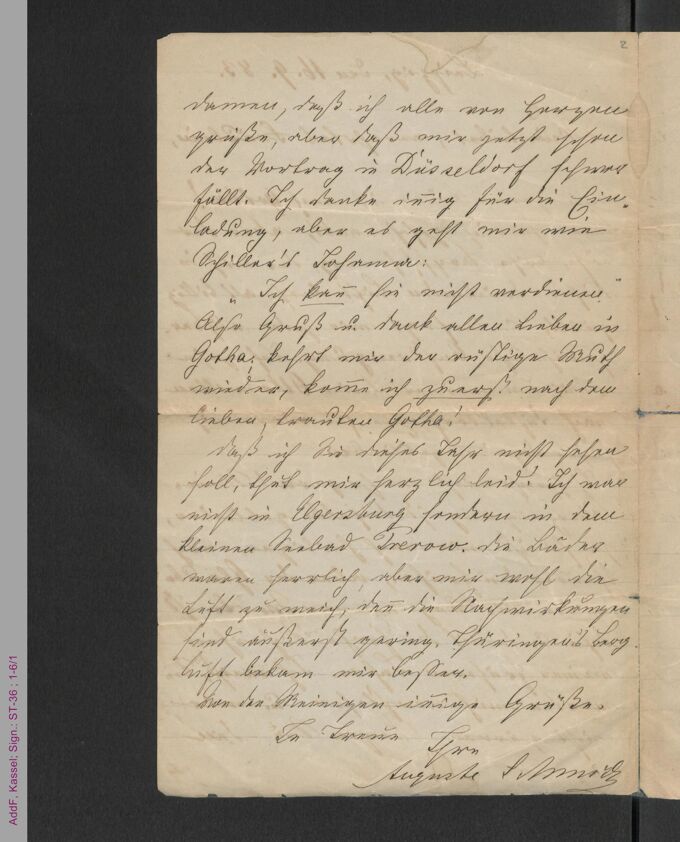 2
Damen, daß ich alle von Herzen
grüße, aber daß mir jetzt schon
der Vortrag in Düsseldorf schwer
fällt. Ich danke innig für die Ein-
ladung, aber es geht mir wie
Schiller's Johanna:
„Ich kann sie nicht verdienen"
Also Gruß u. Dank allen Lieben in
Gotha, kehrt mir der rüstige Muth
wieder, komme ich zuerst nach dem
lieben, trauten Gotha!
Daß ich Sie dieses Jahr nicht sehen
soll, thut mir herzlich leid! Ich war
nicht in Elgersburg sondern in dem
kleinen Seebad Prerow. Die Bäder
waren herrlich, aber mir wohl die
Luft zu weich, denn die Nachwirkungen
sind äußerst gering. Thüringen's Berg
luft bekam mir besser.
Von den Meinigen innige Grüße.
In Treue
Ihre
Auguste Schmidt
AddF, Kassel; Sign.: ST-36 ; 1-6/1